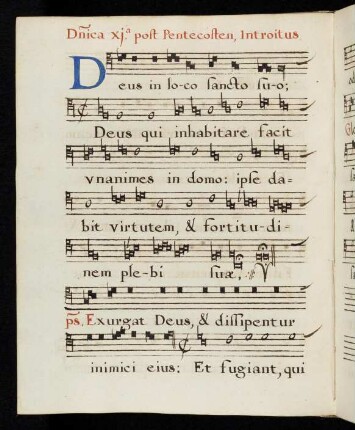 Dñica xj.ª poſt Pentecoſten, Introitus
Deus in lo-co ſancto ſu-o;
Deus qui inhabitare facit
vnanimes in domo: ipſe da-
bit virtutem, & fortitu-di-
nem ple-bi ſuæ.
ps. Exurgat Deus, & diſſipentur
inimici eius: Et fugiant, qui